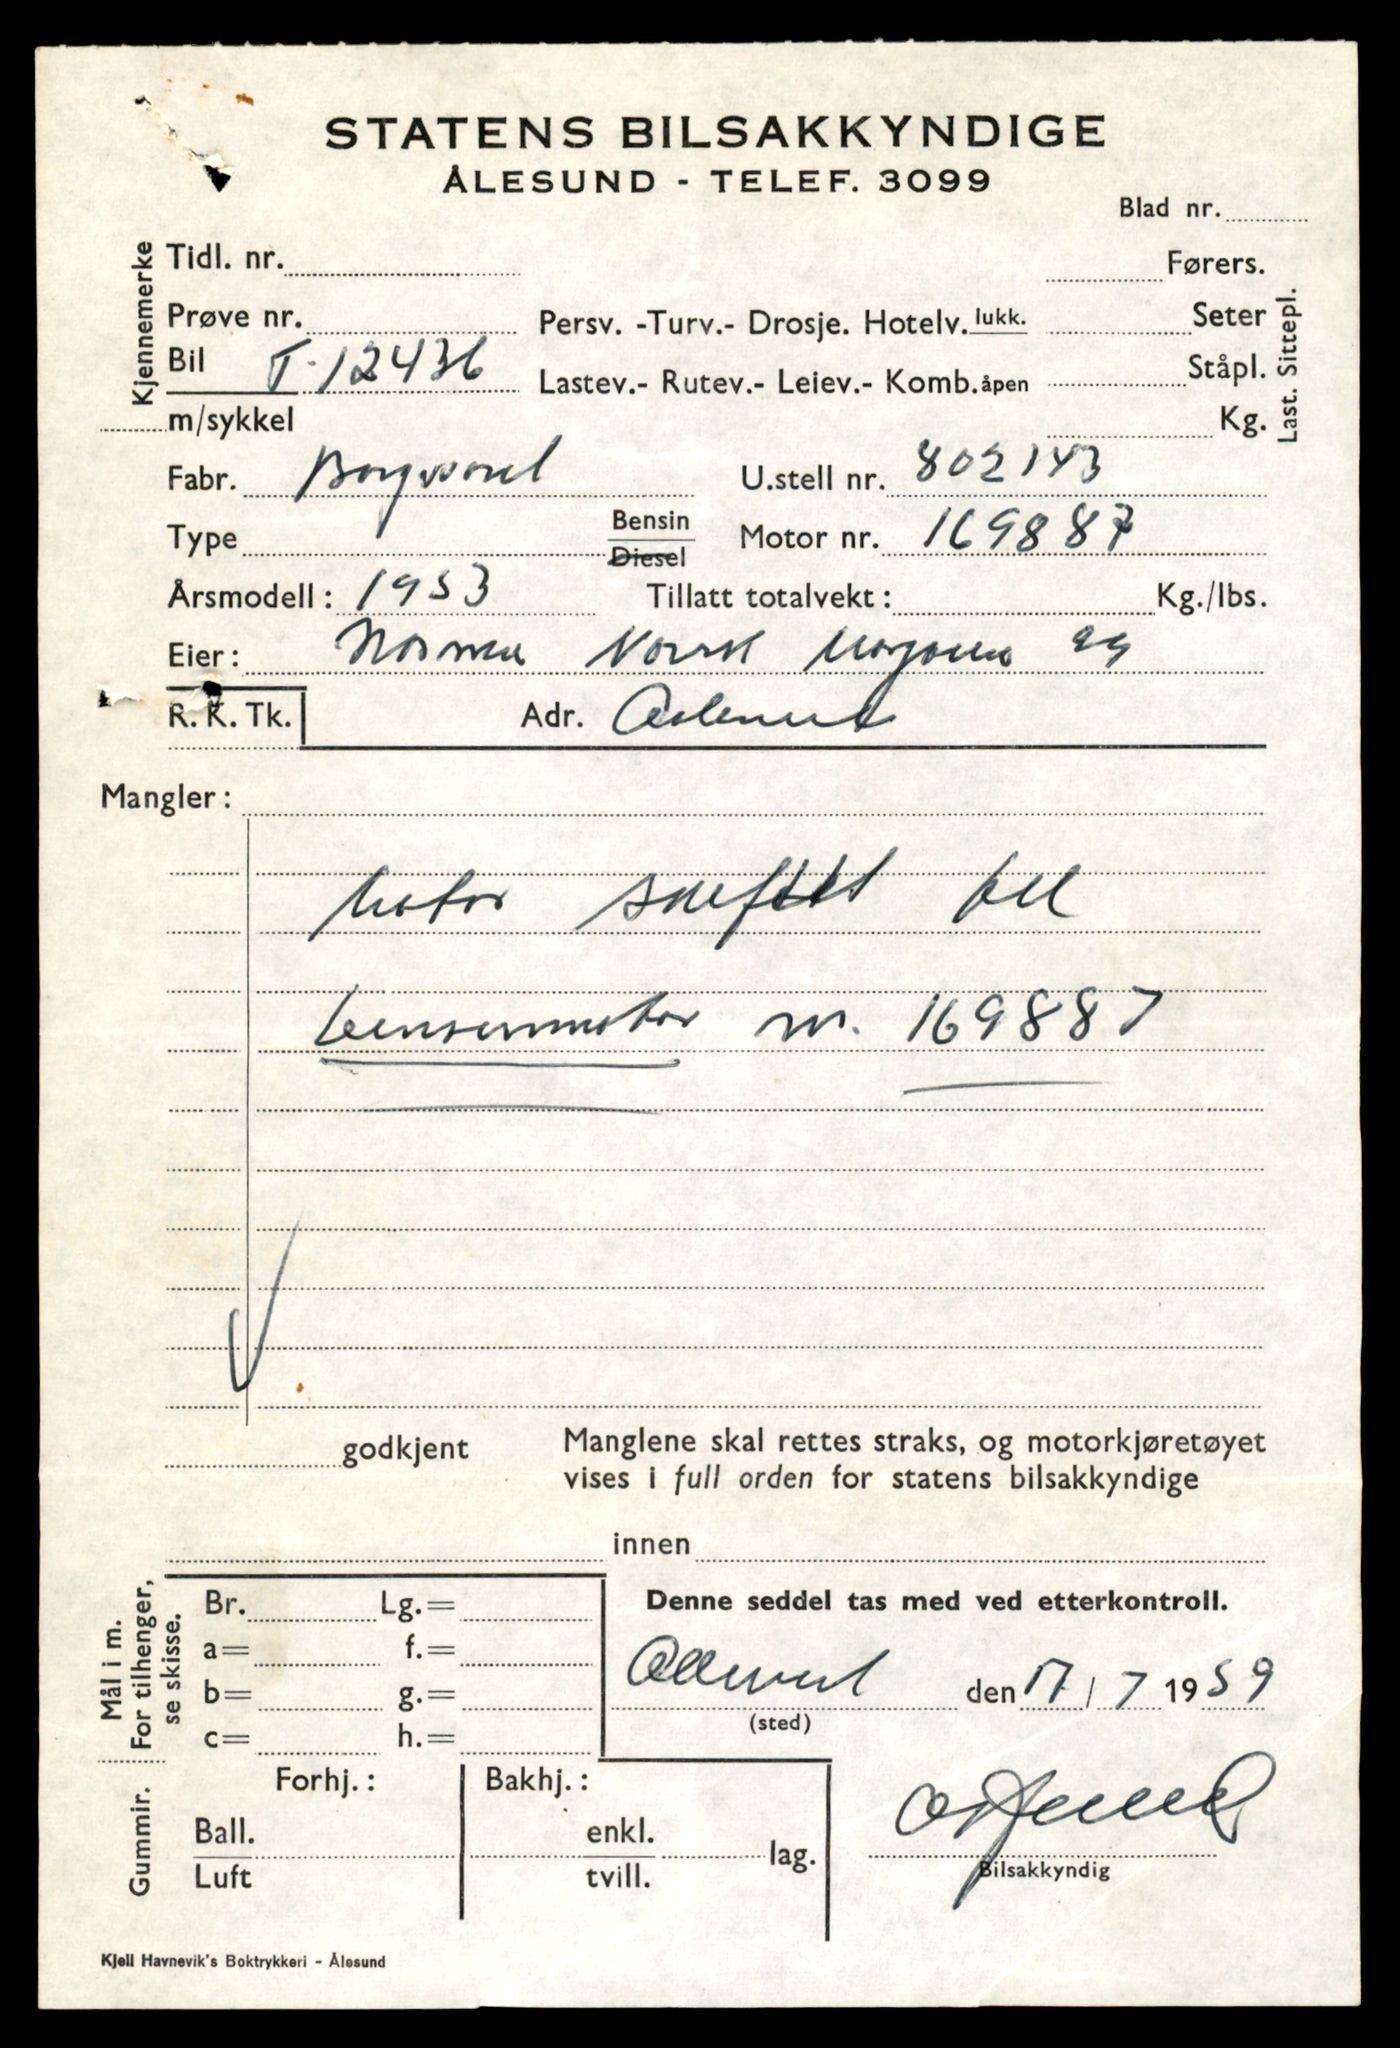 STATENS BILSAKKYNDIGE
ÅLESUND - TELEF. 3099
Blad nr.
Kjennemerke
Tidl. nr.
Førers.
Prøve nr.
Persv. -Turv.- Drosje. Hotelv. lukk.
Seter
Bil T-12436
Lastev.- Rutev.- Leiev.- Komb. åpen
Ståpl.
m/sykkel
Kg.
Last. Sittepl.
Fabr. Borgward U.stell nr. 802143
Type Bensin
Diesel
Motor nr. 169887
Årsmodell: 1953 Tillatt totalvekt: Kg./lbs.
Eier: Norsk
R. K. Tk. Adr. Ålesund
Mangler:
Motor skiftet til
bensinmotor nr. 169887
godkjent
Manglene skal rettes straks, og motorkjøretøyet
vises i full orden for statens bilsakkyndige
innen
Mål i m.
For tilhenger,
se skisse.
Br. Lg.=
a= f.=
b= g.=
c= h.=
Denne seddel tas med ved etterkontroll.
Ålesund den 17/7 1959
(sted)
Gummir.
Forhj.: Bakhj.:
Ball. enkl.
lag.
Luft tvill.
Bilsakkyndig
Kjell Havnevik's Boktrykkeri - Ålesund